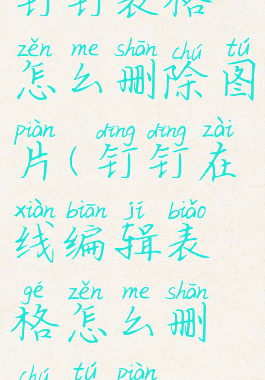 钉钉表格
zěn me shān chú tú
怎么删除图
piàn dīng dīng zài
片(钉钉在
xiàn biān jí biǎo
线编辑表
gé zěn me shān
格怎么删
chú tú piàn